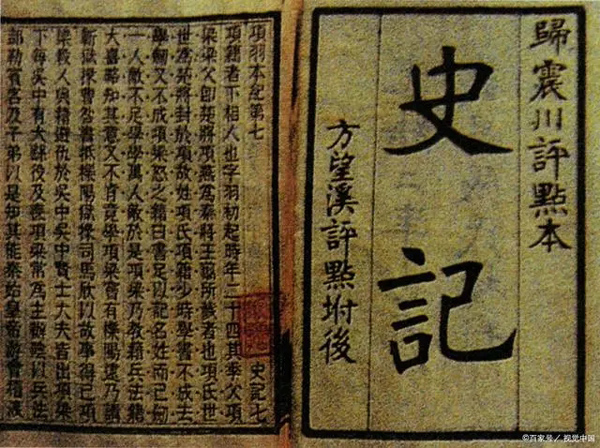 歸震川評點本
史記
方望溪評點坿後
項羽本紀第七 史記七
項籍者下相人也字羽初起時年二十四其季父項
梁梁父卽楚將項燕爲秦將王翦所戮者也項氏世
世爲楚將封於項故姓項氏項籍少時學書不成去
學劒又不成項梁怒之籍曰書足以記名姓而已劒
一人敵不足學學萬人敵於是項梁乃教籍兵法籍
大喜略知其意又不肯竟學項梁嘗有櫟陽逮乃請
蘄獄掾曹咎書抵櫟陽獄掾司馬欣以故事得已項
梁殺人與籍避仇於吳中吳中賢士大夫皆出項梁
下每吳中有大繇役及喪項梁常爲主辦陰以兵法
部勒賓客及子弟以是知其能秦始皇帝游會稽渡
©百家号/视觉中国